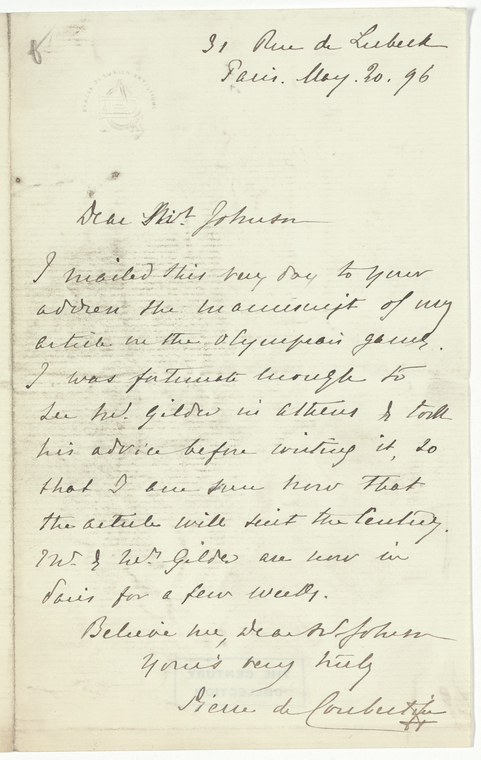 31 Rue de Lubeck
Paris. May. 20. 96
Dear Mr. Johnson
I mailed this very day to your
address the manuscript of my
article on the Olympian games.
I was fortunate enough to
see Mr. Gilder in Athens & took
his advice before writing it, so
that I am sure now that
the article will suit the Century.
Mr. & Mrs. Gilder are now in
Paris for a few weeks.
Believe me, dear Mr. Johnson
Yours very truly
Pierre de Coubertin